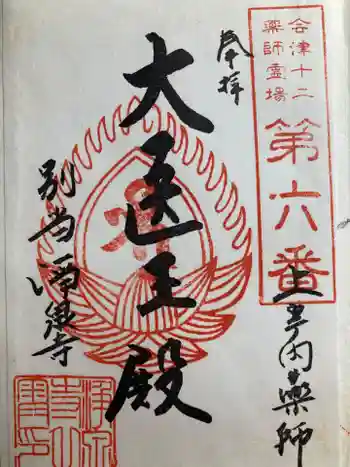 会津十二
薬師霊場
第六番
上宇内薬師
奉拝
大医王殿
別当 浄泉寺